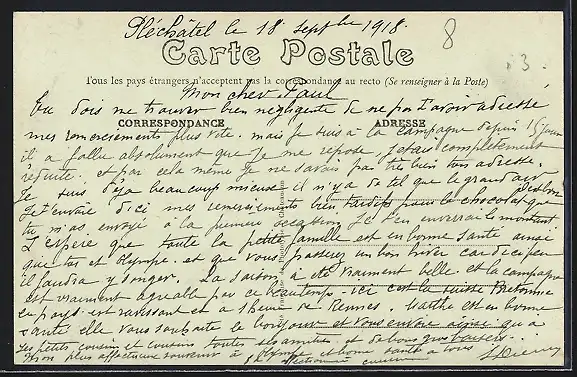 Pléchâtel le 18 septbre 1918.
8
3.
Carte Postale
Tous les pays étrangers n'acceptent pas la correspondance au recto (Se renseigner à la Poste)
Mon cher Paul
Tu dois me trouver bien négligente de ne pas t'avoir adressé
CORRESPONDANCE
ADRESSE
mes remerciements plus vite. mais je suis à la campagne depuis 15 jours
il a fallu absolument que je me repose, j'étais complètement
et par cela même je ne savais pas très bien ton adresse.
Je suis déjà beaucoup mieux il n'y a de tel que le grand air
Je t'envoie d'ici mes remerciements bien pour le chocolat que
tu m'as envoyé à la première occasion je t'en enverrai le montant
J'espère que toute la petite famille est en bonne santé ainsi
que toi et Olympe. et que vous passerez un bon hiver car d'ici peu
il faudra y songer. La saison a été vraiment belle et la campagne
est vraiment agréable par ce beau temps. ici c'est la suisse Bretonne
le pays est ravissant et a 1 heure de Rennes. Marthe est en bonne
santé elle vous souhaite le bonjour et vous envoie ainsi qu'a
ses petits cousins et cousins toutes ses amitiés et de bons gros baisers
Mon plus affectueux souvenir à Olympe et bonne santé à tous